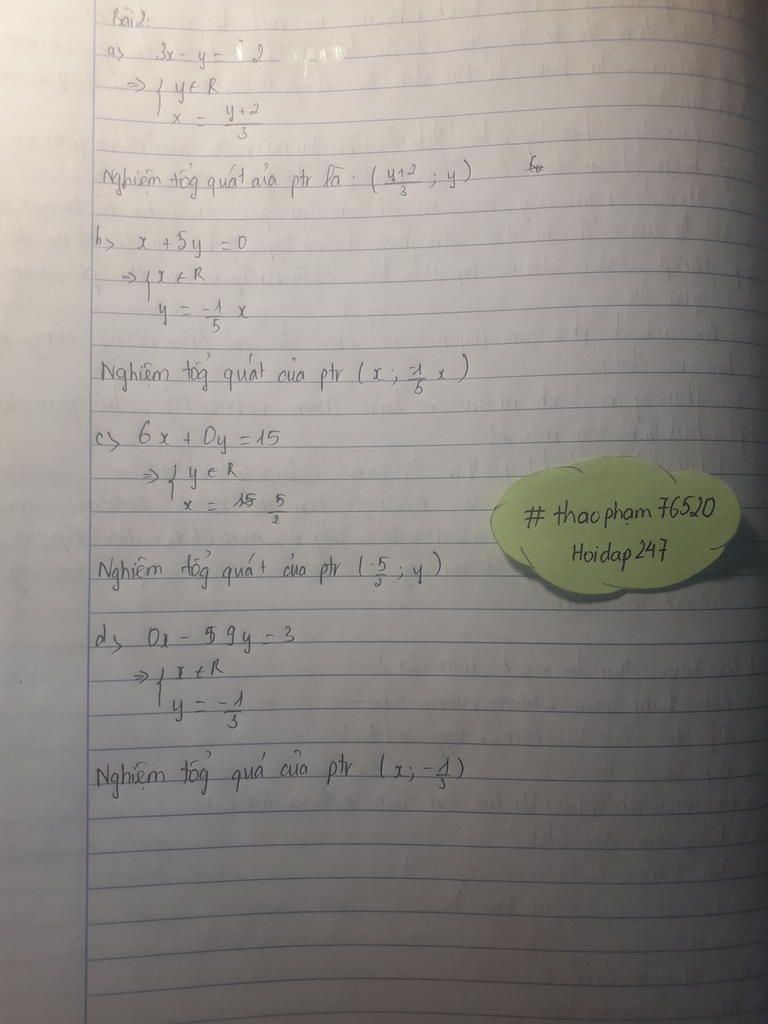 Bài 2:
a> 3x - y = 2
=> { y ∈ R
x = y+2/3
Nghiệm tổg quát của ptr là: (y+2/3 ; y)
b> x + 5y = 0
=> { x ∈ R
y = -1/5 x
Nghiệm tổg quát của ptr (x ; -1/5 x)
c> 6x + 0y = 15
=> { y ∈ R
x = 5/2
Nghiệm tổg quát của ptr (5/2 ; y)
d> 0x - 9y = 3
=> { x ∈ R
y = -1/3
Nghiệm tổg quá của ptr (x ; -1/3)
# thaophạm 76520
Hoidap 247